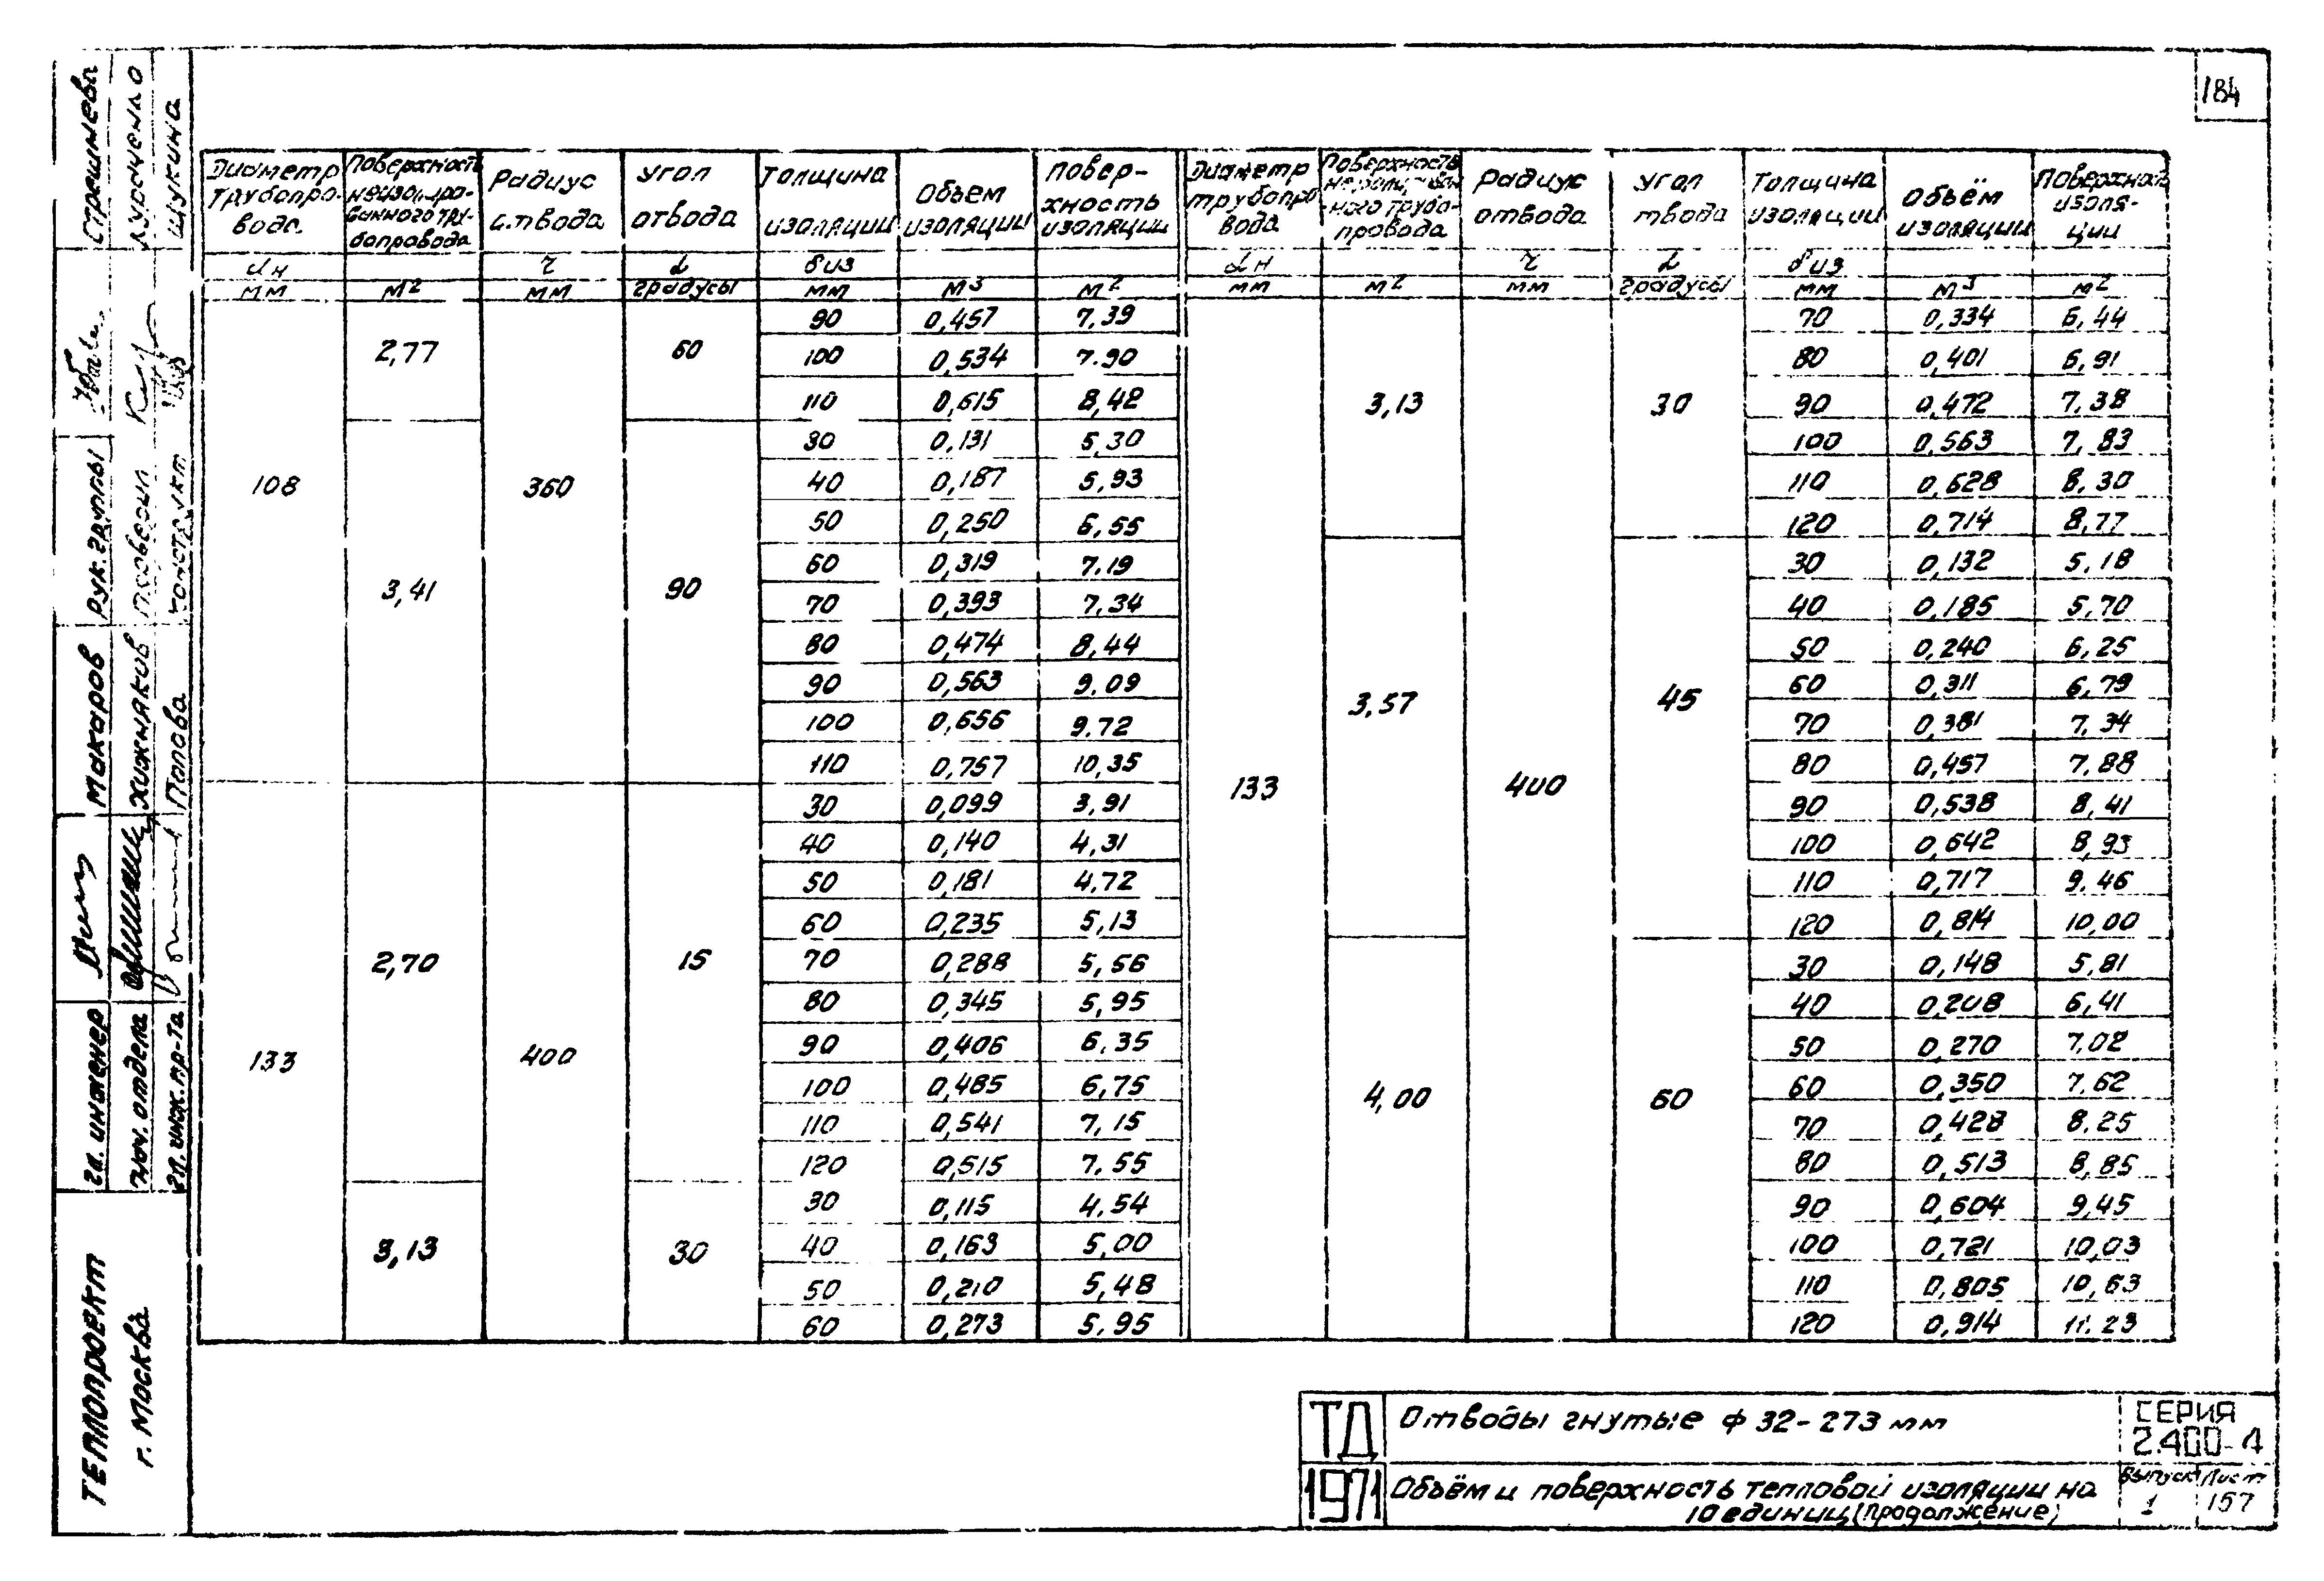 184
Диаметр трубопровода | Поверхность неизолированного трубопровода | Радиус отвода | Угол отвода | Толщина изоляции | Объем изоляции | Поверхность изоляции | Диаметр трубопровода | Поверхность неизолированного трубопровода | Радиус отвода | Угол отвода | Толщина изоляции | Объём изоляции | Поверхность изоляции
dн | r | α | δиз | dн | r | α | δиз
мм | м² | мм | градусы | мм | м³ | м² | мм | м² | мм | градусы | мм | м³ | м²
108 | 2,77 | 360 | 60 | 90 | 0,457 | 7,39 | 133 | 3,13 | 400 | 30 | 70 | 0,334 | 6,44
100 | 0,534 | 7.90 | 80 | 0,401 | 6,91
110 | 0,615 | 8,42 | 90 | 0,472 | 7,38
3,41 | 90 | 30 | 0,131 | 5,30 | 100 | 0,563 | 7,83
40 | 0,187 | 5,93 | 110 | 0,628 | 8,30
50 | 0,250 | 6,55 | 120 | 0,714 | 8,77
60 | 0,319 | 7.19 | 3,57 | 45 | 30 | 0,132 | 5,18
70 | 0,393 | 7,34 | 40 | 0,185 | 5,70
80 | 0,474 | 8,44 | 50 | 0,240 | 6,25
90 | 0,563 | 9,09 | 60 | 0,311 | 6,79
100 | 0,656 | 9.72 | 70 | 0,381 | 7,34
110 | 0,757 | 10,35 | 80 | 0,457 | 7,88
133 | 2,70 | 400 | 15 | 30 | 0,099 | 3,91 | 90 | 0,538 | 8,41
40 | 0,140 | 4,31 | 100 | 0,642 | 8,93
50 | 0,181 | 4,72 | 110 | 0,717 | 9,46
60 | 0,235 | 5,13 | 120 | 0,814 | 10,00
70 | 0,288 | 5,56 | 4,00 | 60 | 30 | 0,148 | 5,81
80 | 0,345 | 5,95 | 40 | 0,208 | 6,41
90 | 0,406 | 6,35 | 50 | 0,270 | 7,02
100 | 0,485 | 6,75 | 60 | 0,350 | 7,62
110 | 0,541 | 7,15 | 70 | 0,428 | 8,25
120 | 0,515 | 7,55 | 80 | 0,513 | 8,85
3,13 | 30 | 30 | 0,115 | 4,54 | 90 | 0,604 | 9,45
40 | 0,163 | 5,00 | 100 | 0,721 | 10,03
50 | 0,210 | 5,48 | 110 | 0,805 | 10,63
60 | 0,273 | 5,95 | 120 | 0,914 | 11.23
ТЕПЛОПРОЕКТ
г. Москва
гл. инженер | Макаров | рук. группы
нач. отдела | Хижняков | Проверил
гл. инж. пр-та | Попова | Конструкт | Щукина
ТД
1971
Отводы гнутые ф 32-273 мм
Объём и поверхность тепловой изоляции на
10 единиц (продолжение)
СЕРИЯ
2.400-4
Выпуск | Лист
1 | 157